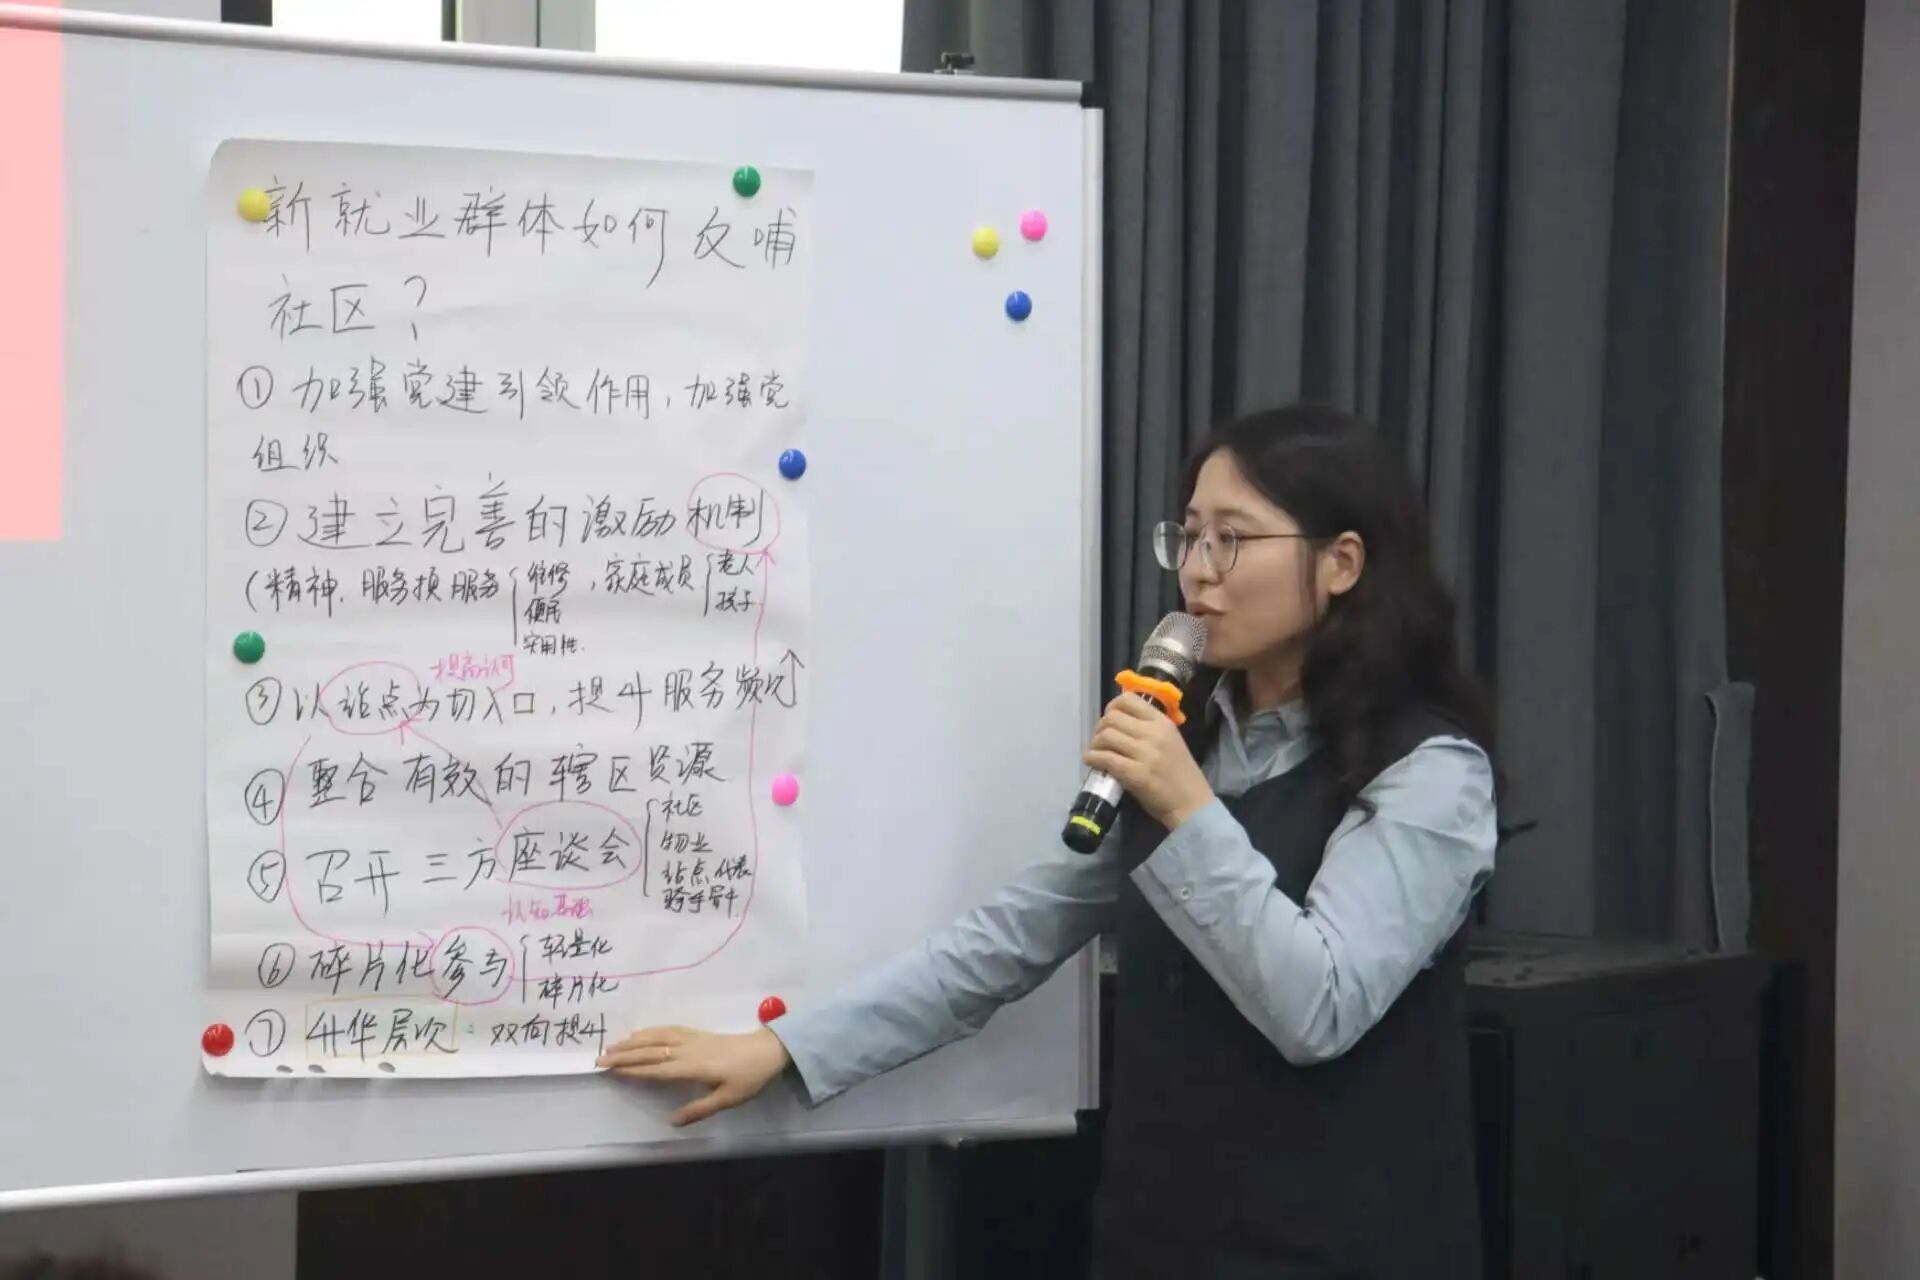 新就业群体如何反哺
社区？
①加强党建引领作用，加强党
组织
②建立完善的激励机制
(精神、服务换服务{维修，家庭成员{老人
便民 孩子
实用性.
提高认可
③以站点为切入口，提升服务频次↑
④整合有效的辖区资源
⑤召开三方座谈会{社区
物业
站点代表
骑手骨干
认知基础
⑥碎片化参与{轻量化
碎片化
⑦升华层次：双向提升